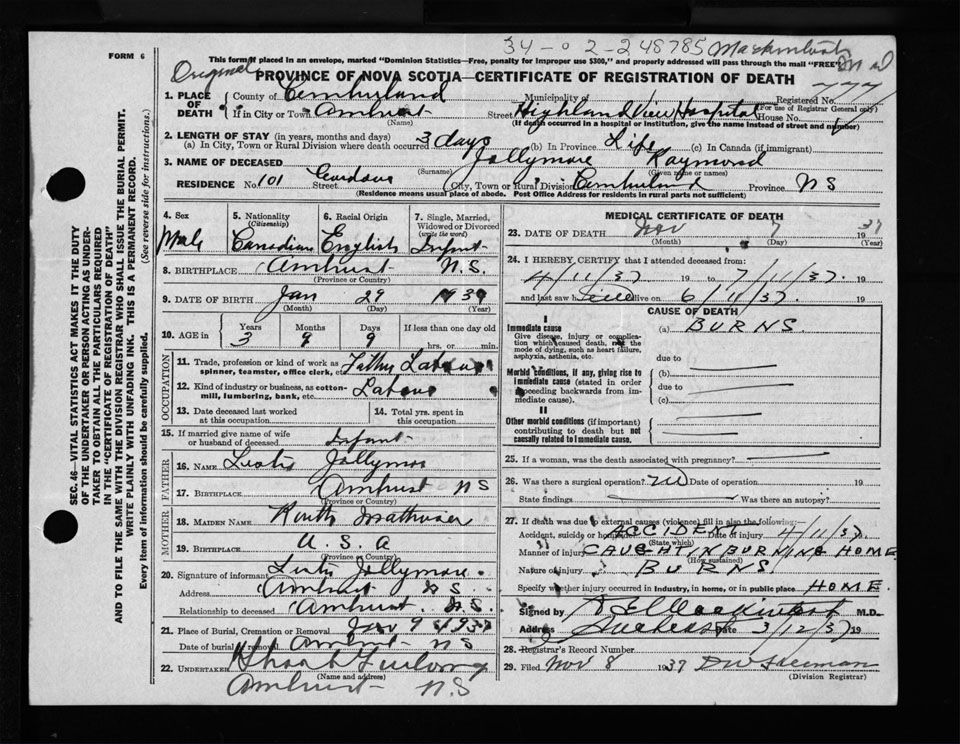 34-0 2-248785 Mackintosh
FORM 6
This form if placed in an envelope, marked "Dominion Statistics—Free, penalty for improper use $300," and properly addressed will pass through the mail "FREE"
Original
PROVINCE OF NOVA SCOTIA—CERTIFICATE OF REGISTRATION OF DEATH
1. PLACE OF DEATH County of Cumberland Municipality of Registered No. 777
(For use of Registrar General only)
If in City or Town Amherst Street Highland View Hospital House No.
(Name) (If death occurred in a hospital or institution, give the name instead of street and number)
2. LENGTH OF STAY (in years, months and days)
(a) In City, Town or Rural Division where death occurred 3 days (b) In Province Life (c) In Canada (if immigrant)
3. NAME OF DECEASED Jollymore Raymond
(Surname) (Given name or names)
RESIDENCE No. 101 Cordova Street (City, Town or Rural Division) Cumberland Province NS
(Residence means usual place of abode. Post Office Address for residents in rural parts not sufficient)
SEC. 46—VITAL STATISTICS ACT MAKES IT THE DUTY
OF THE UNDERTAKER OR PERSON ACTING AS UNDER-
TAKER TO OBTAIN ALL THE PARTICULARS REQUIRED
IN THE "CERTIFICATE OF REGISTRATION OF DEATH"
AND TO FILE THE SAME WITH THE DIVISION REGISTRAR WHO SHALL ISSUE THE BURIAL PERMIT.
WRITE PLAINLY WITH UNFADING INK. THIS IS A PERMANENT RECORD.
Every item of information should be carefully supplied. (See reverse side for instructions.)
4. Sex Male
5. Nationality (Citizenship) Canadian
6. Racial Origin English
7. Single, Married, Widowed or Divorced (write the word) Infant
8. BIRTHPLACE Amherst N.S.
(Province or Country)
9. DATE OF BIRTH Jan 29 193
(Month) (Day) (Year)
10. AGE in Years 3 Months 9 Days 9 If less than one day old
hrs. or min.
OCCUPATION
11. Trade, profession or kind of work as spinner, teamster, office clerk, etc. Father Labour
12. Kind of industry or business, as cotton-mill, lumbering, bank, etc. Labour
13. Date deceased last worked at this occupation
14. Total yrs. spent in this occupation
15. If married give name of wife or husband of deceased Infant
FATHER
16. NAME Jollymore
17. BIRTHPLACE Amherst NS
(Province or Country)
MOTHER
18. MAIDEN NAME Ruth
19. BIRTHPLACE U.S.A
(Province or Country)
20. Signature of informant Jollymore
Address Amherst NS
Relationship to deceased Amherst. N.S.
21. Place of Burial, Cremation or Removal Nov 9 1937
Date of burial or removal Amherst NS
22. UNDERTAKER Furlong
(Name and address)
Amherst N.S
MEDICAL CERTIFICATE OF DEATH
23. DATE OF DEATH Nov 7 1937
(Month) (Day) (Year)
24. I HEREBY CERTIFY that I attended deceased from:
4/11/37 19 to 7/11/37. 19
and last saw h alive on 6/11/37. 19
CAUSE OF DEATH
I
Immediate cause (a) BURNS.
Give disease, injury or complication which caused death, not the mode of dying, such as heart failure, asphyxia, asthenia, etc.
due to
Morbid conditions, if any, giving rise to immediate cause (stated in order proceeding backwards from immediate cause).
(b)
due to
(c)
II
Other morbid conditions (if important) contributing to death but not causally related to immediate cause.
25. If a woman, was the death associated with pregnancy?
26. Was there a surgical operation? no Date of operation 19
State findings Was there an autopsy?
27. If death was due to external causes (violence) fill in also the following:
Accident, suicide or homicide ACCIDENT Date of injury 4/11/37
(State which)
Manner of injury CAUGHT IN BURNING HOME
(How sustained)
Nature of injury BURNS.
Specify whether injury occurred in industry, in home, or in public place HOME.
Signed by M.D.
Address Amherst Date 3/12/37 19
28. Registrar's Record Number
29. Filed Nov 8 1937
(Division Registrar)